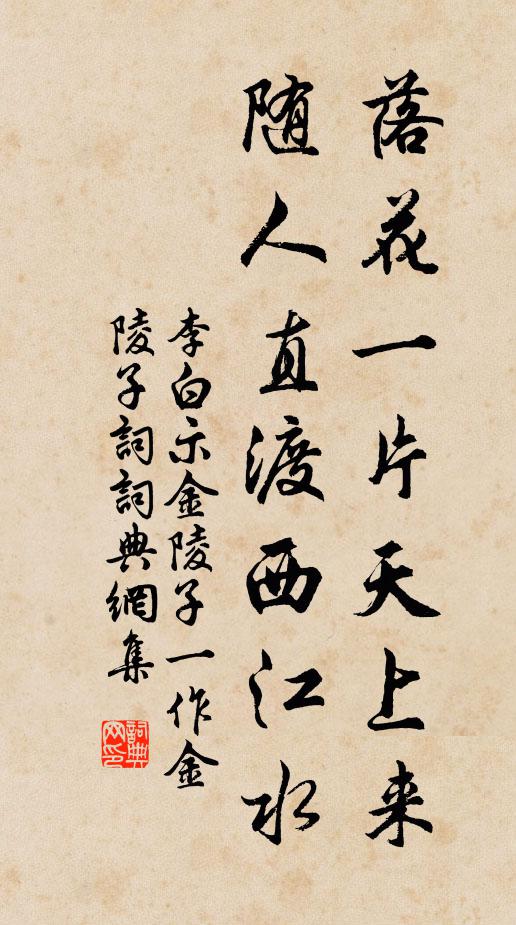 落花一片天上来
随人直渡西江水
李白示金陵子一作金
陵子詞詞典網集
詞典网印